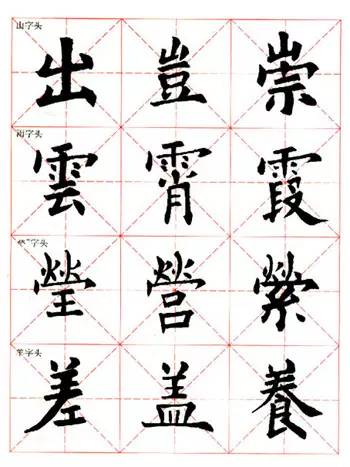 山字头
出 豈 崇
雨字头
雲 霄 霞
字头
瑩 營 縈
羊字头
差 盖 養